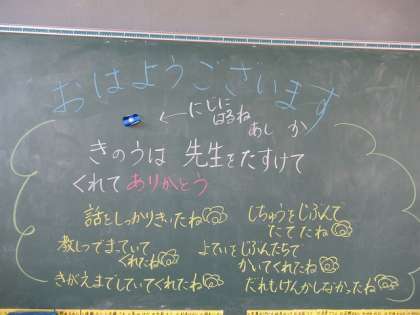 おはようございます
←にじに
はるね
あし か
きのうは 先生をたすけて
くれて ありがとう
話をしっかりきいたね
しちゅうをじぶんで
たてたね
教しつでまっていて
くれたね
よていをじぶんたちで
かいてくれたね
きがえまでしていてくれたね
だれもけんかしなかったね